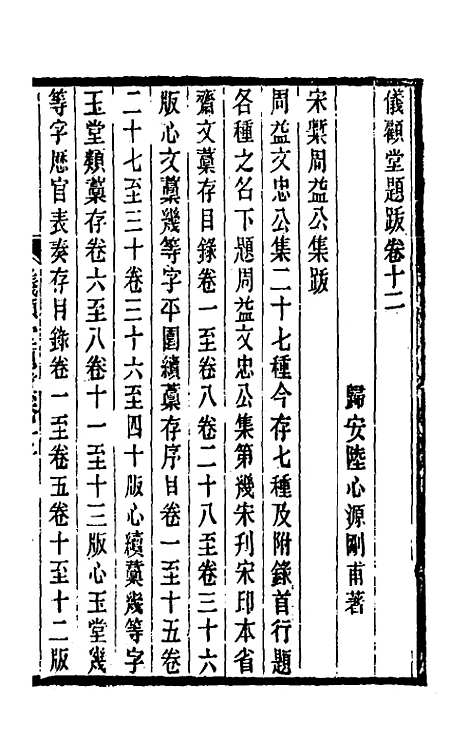 儀顧堂題跋卷十二
歸安陸心源剛甫著
宋槧周益公集跋
周益文忠公集二十七種今存七種及附錄首行題
各種之名下題周益文忠公集第幾宋刊宋印本省
齋文藁存目錄卷一至卷八卷二十八至卷三十六
版心文藁幾等字平園續藁存序目卷一至十五卷
二十七至三十卷三十六至四十版心續藁幾等字
玉堂類藁存卷六至八卷十一至十三版心玉堂幾
等字歴官表奏存目錄卷一至卷五卷十至十二版